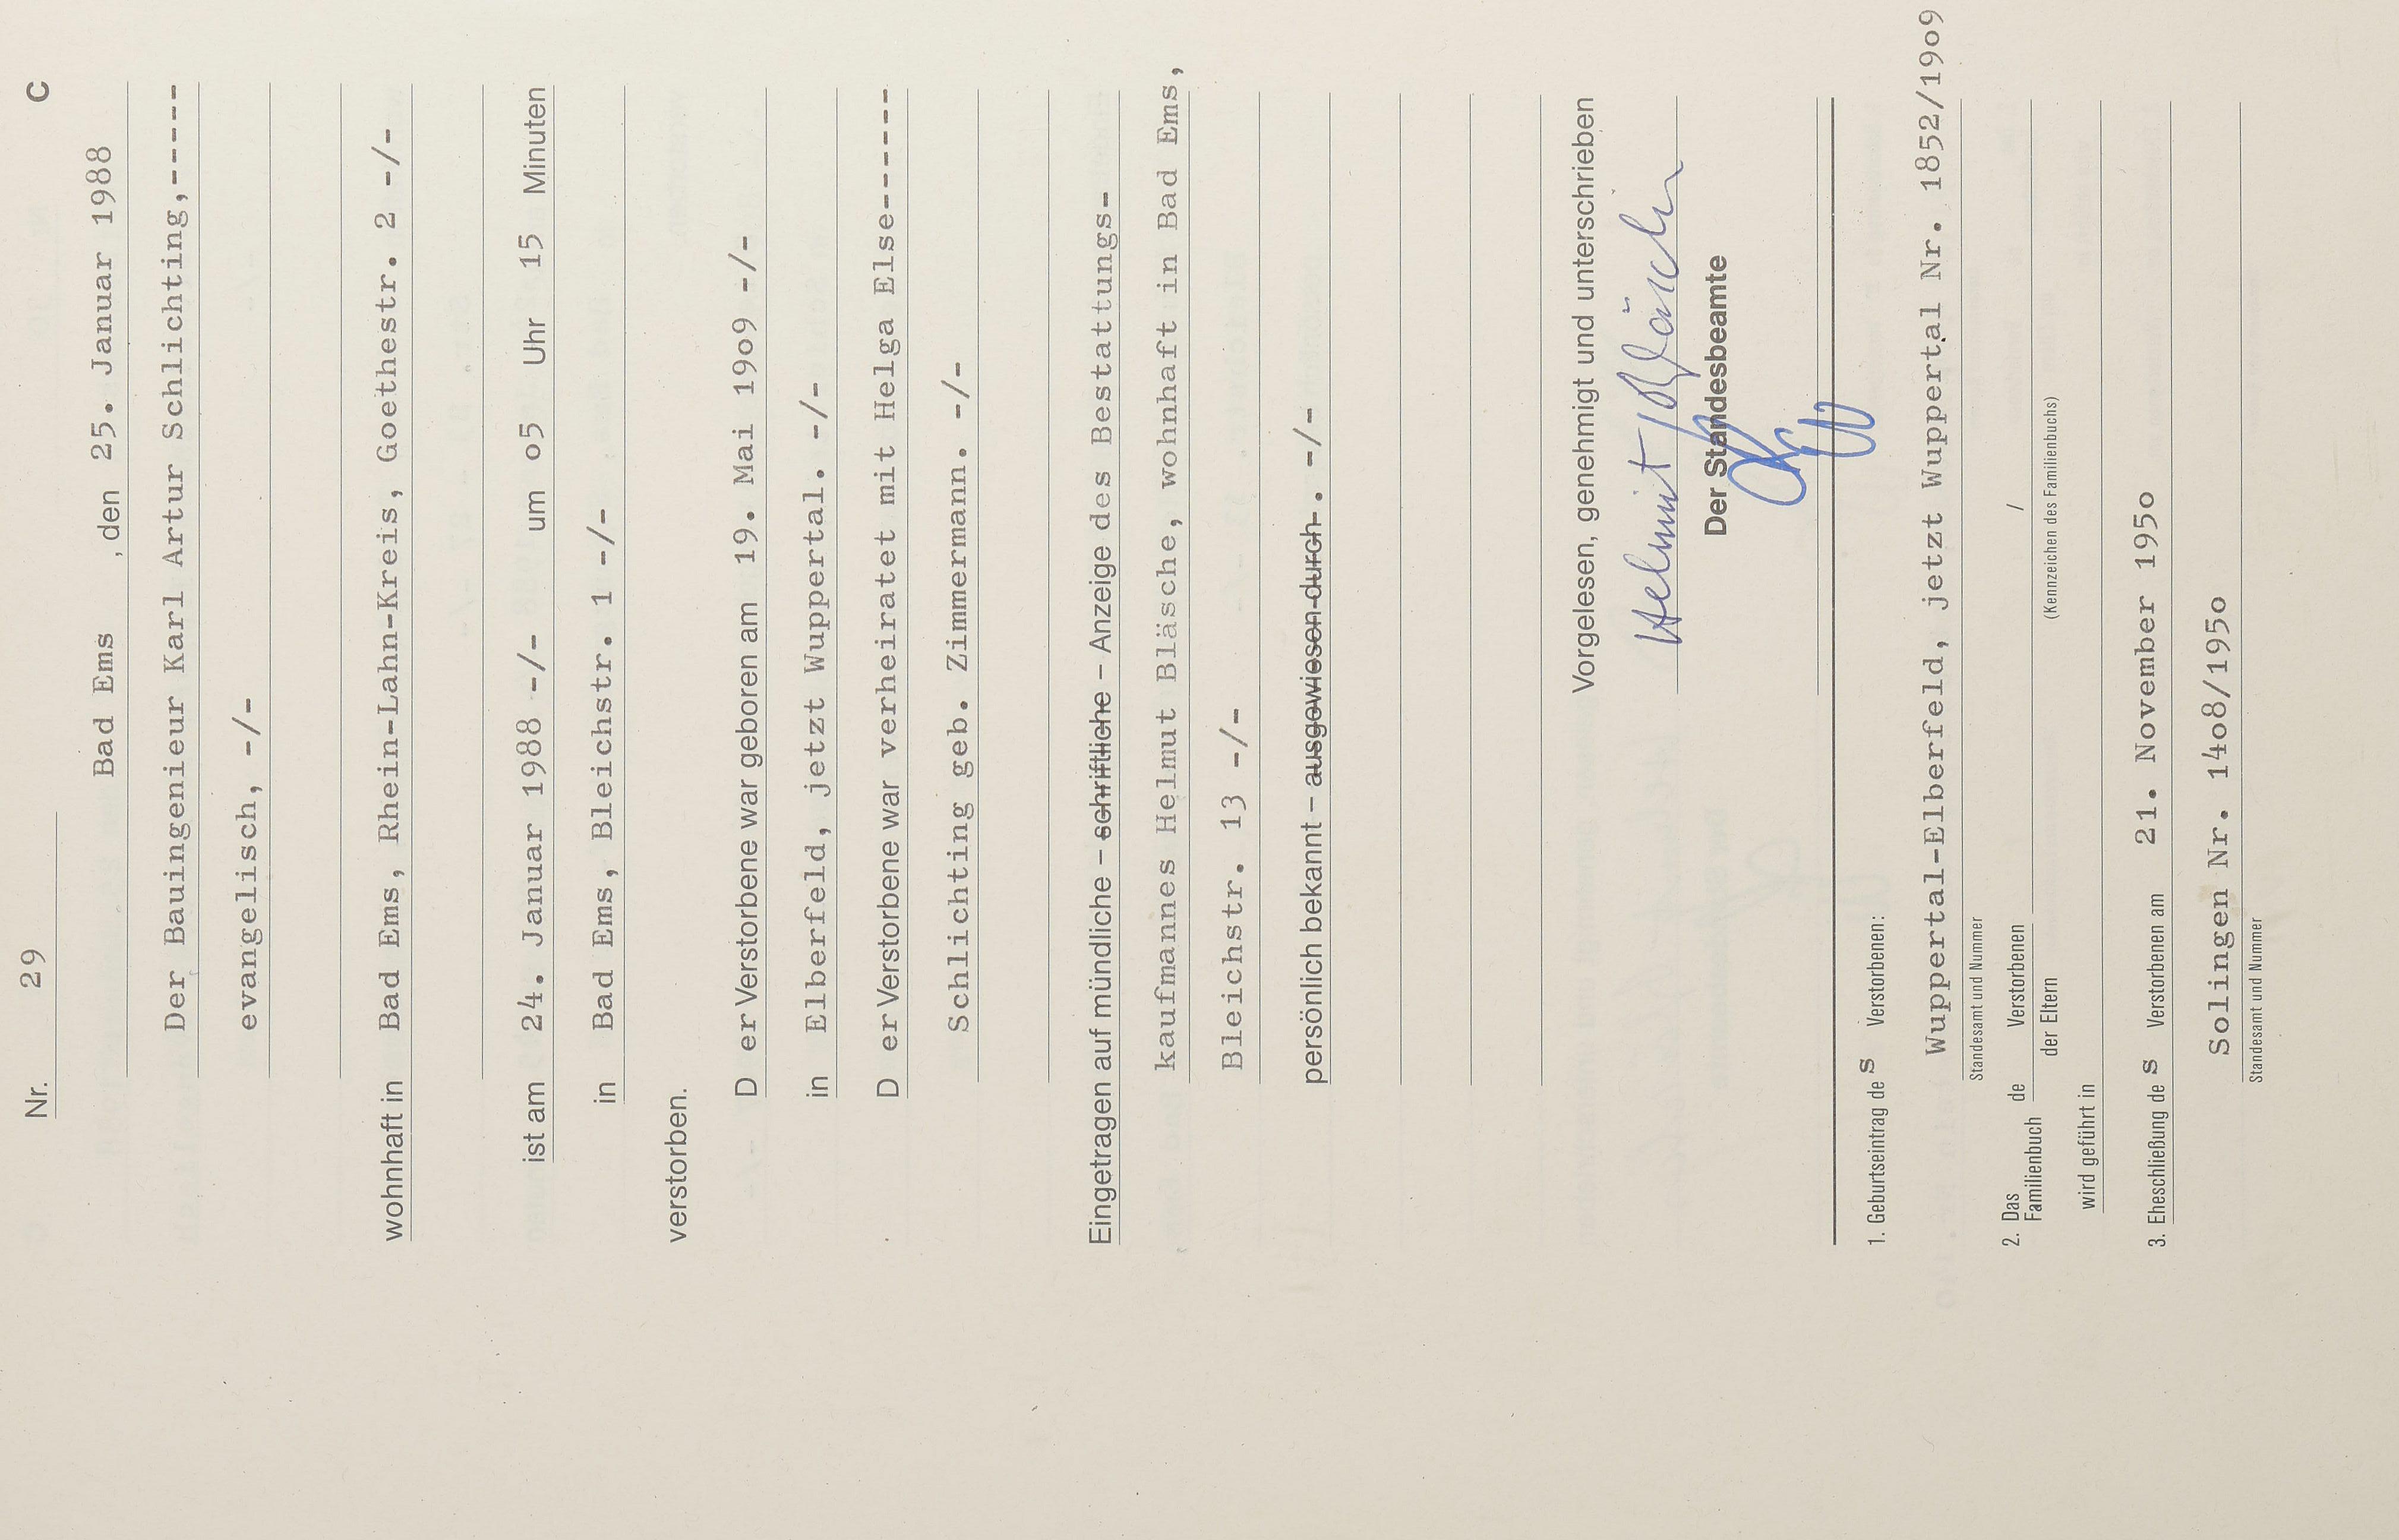 Nr. 29 C
Bad Ems , den 25. Januar 1988
Der Bauingenieur Karl Artur Schlichting,-----
evangelisch, -/-
wohnhaft in Bad Ems, Rhein-Lahn-Kreis, Goethestr. 2 -/-
ist am 24. Januar 1988 -/- um o5 Uhr 15 Minuten
in Bad Ems, Bleichstr. 1 -/-
verstorben.
D er Verstorbene war geboren am 19. Mai 19o9 -/-
in Elberfeld, jetzt Wuppertal. -/-
D er Verstorbene war verheiratet mit Helga Else------
Schlichting geb. Zimmermann. -/-
Eingetragen auf mündliche – schriftliche – Anzeige des Bestattungs-
kaufmannes Helmut Bläsche, wohnhaft in Bad Ems,
Bleichstr. 13 -/-
persönlich bekannt – ausgewiesen durch . -/-
Vorgelesen, genehmigt und unterschrieben
Helmut Bläsche
Der Standesbeamte
1. Geburtseintrag de s Verstorbenen:
Wuppertal-Elberfeld, jetzt Wuppertal Nr. 1852/19o9
Standesamt und Nummer
2. Das Familienbuch de Verstorbenen /
der Eltern (Kennzeichen des Familienbuchs)
wird geführt in
3. Eheschließung de s Verstorbenen am 21. November 195o
Solingen Nr. 14o8/195o
Standesamt und Nummer